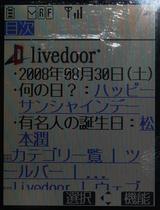 目次
livedoor
・2008年08月30日(土)
・何の日?:ハッピー
サンシャインデー
・有名人の誕生日:松
本潤
カテゴリ一覧 | ツ
ールバー | ...
livedoor | ウェブ
選択 機能